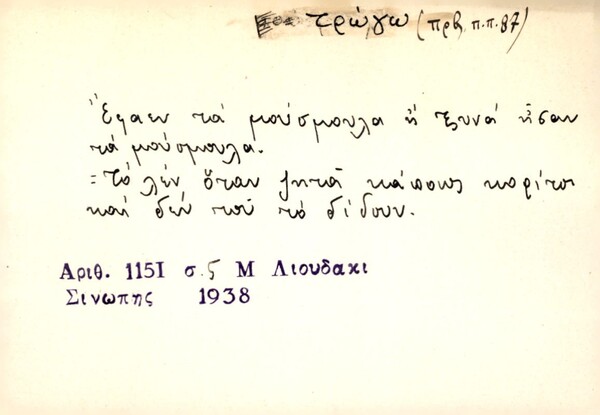 τρώγω (πρβ. π.π. 87)
Ἔφαεν τά μούσμουλα ἤ ξυνά ἦσαν
τά μούσμουλα.
= Τό λέν ὅταν ζητᾶ κάποιος κορίτσι
καί δέν τοῦ τό δίδουν.
Αριθ. 1151 σ. 5 Μ Λιουδακι
Σινωπης 1938